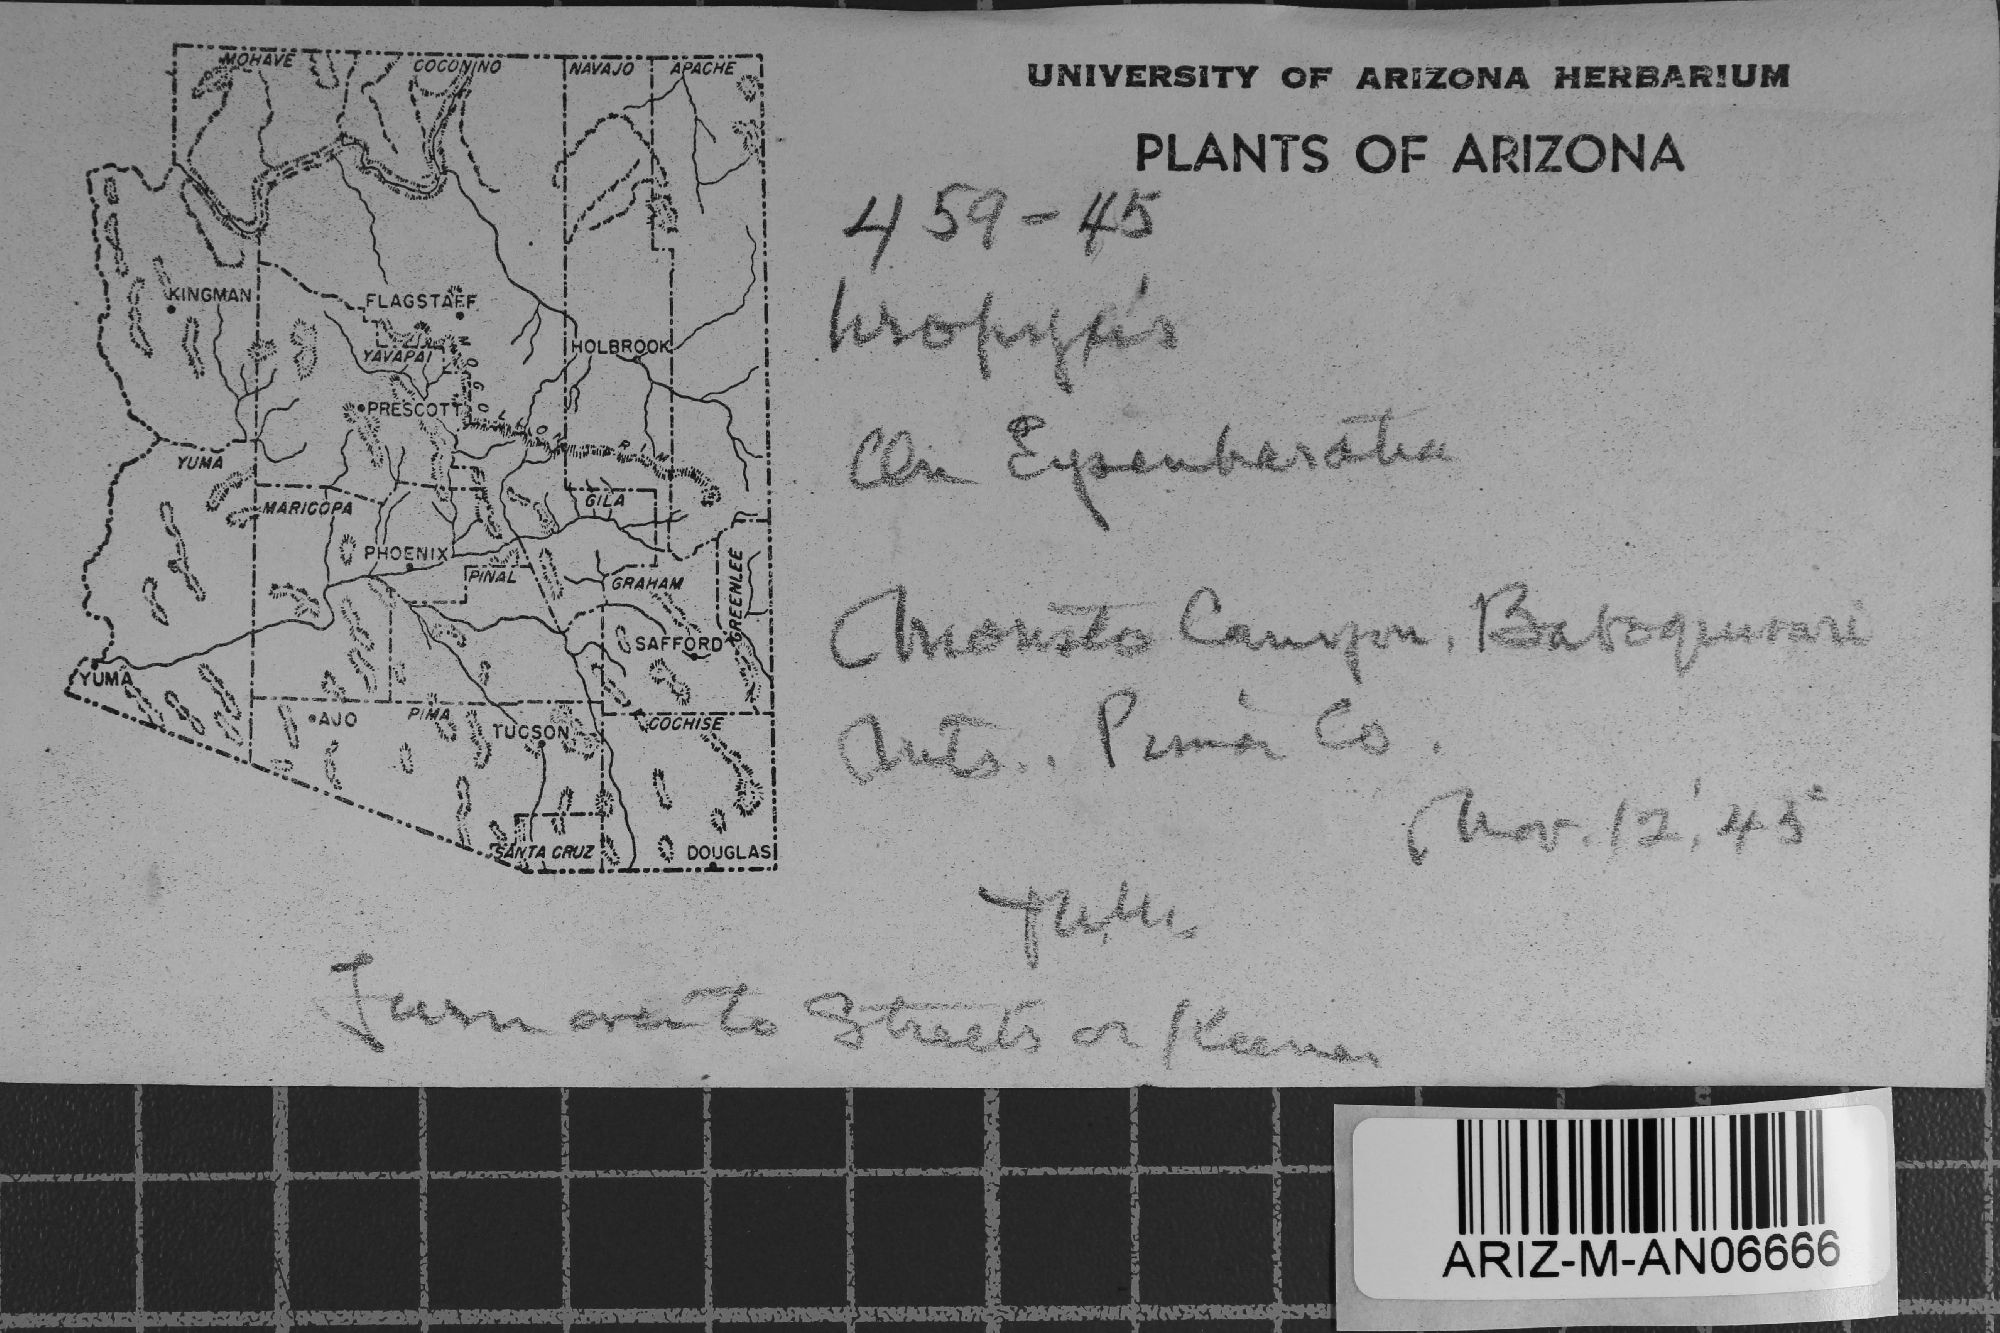 UNIVERSITY OF ARIZONA HERBARIUM
PLANTS OF ARIZONA
459-45
Uropyxis
On Eysenhardtia
Canyon, Baboquivari
Mts., Pima Co.
Nov. 12, '45
Turn over to Streets or
MOHAVE
COCONINO
NAVAJO
APACHE
KINGMAN
FLAGSTAFF
YAVAPAI
HOLBROOK
PRESCOTT
MOGOLLON RIM
YUMA
MARICOPA
GILA
PHOENIX
PINAL
GRAHAM
GREENLEE
SAFFORD
YUMA
AJO
PIMA
TUCSON
COCHISE
SANTA CRUZ
DOUGLAS
ARIZ-M-AN06666